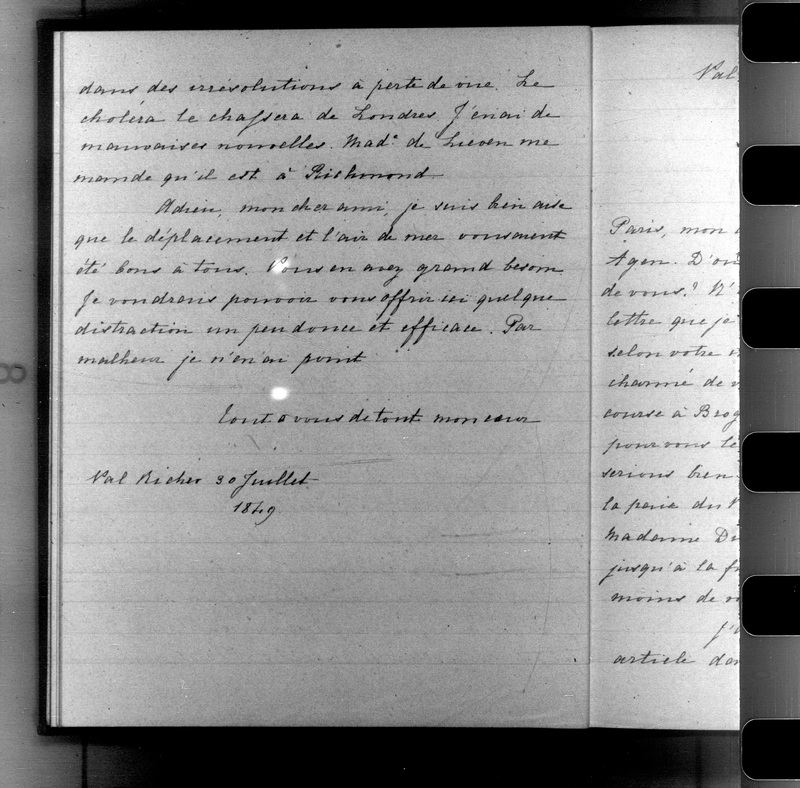 dans des irrésolutions à perte de vue. Le
choléra le chassera de Londres. J'en ai de
mauvaises nouvelles. Made de Lieven me
mande qu'il est à Richmond
Adieu, mon cher ami, je suis bien aise
que le déplacement et l'air de mer vous aient
été bons à tous. Vous en avez grand besoin
Je voudrais pouvoir vous offrir ici quelque
distraction un peu douce et efficace. Par
malheur je n'en ai point
Tout à vous de tout mon cœur
Val Richer 30 Juillet
1849
Val
Paris, mon
Agen. D'où
de vous? N'
lettre que je
selon votre
charmé de
course à Brog
pour vous
serions bien
la paix du
Madame
jusqu'à la
moins de
J'
article dan
8